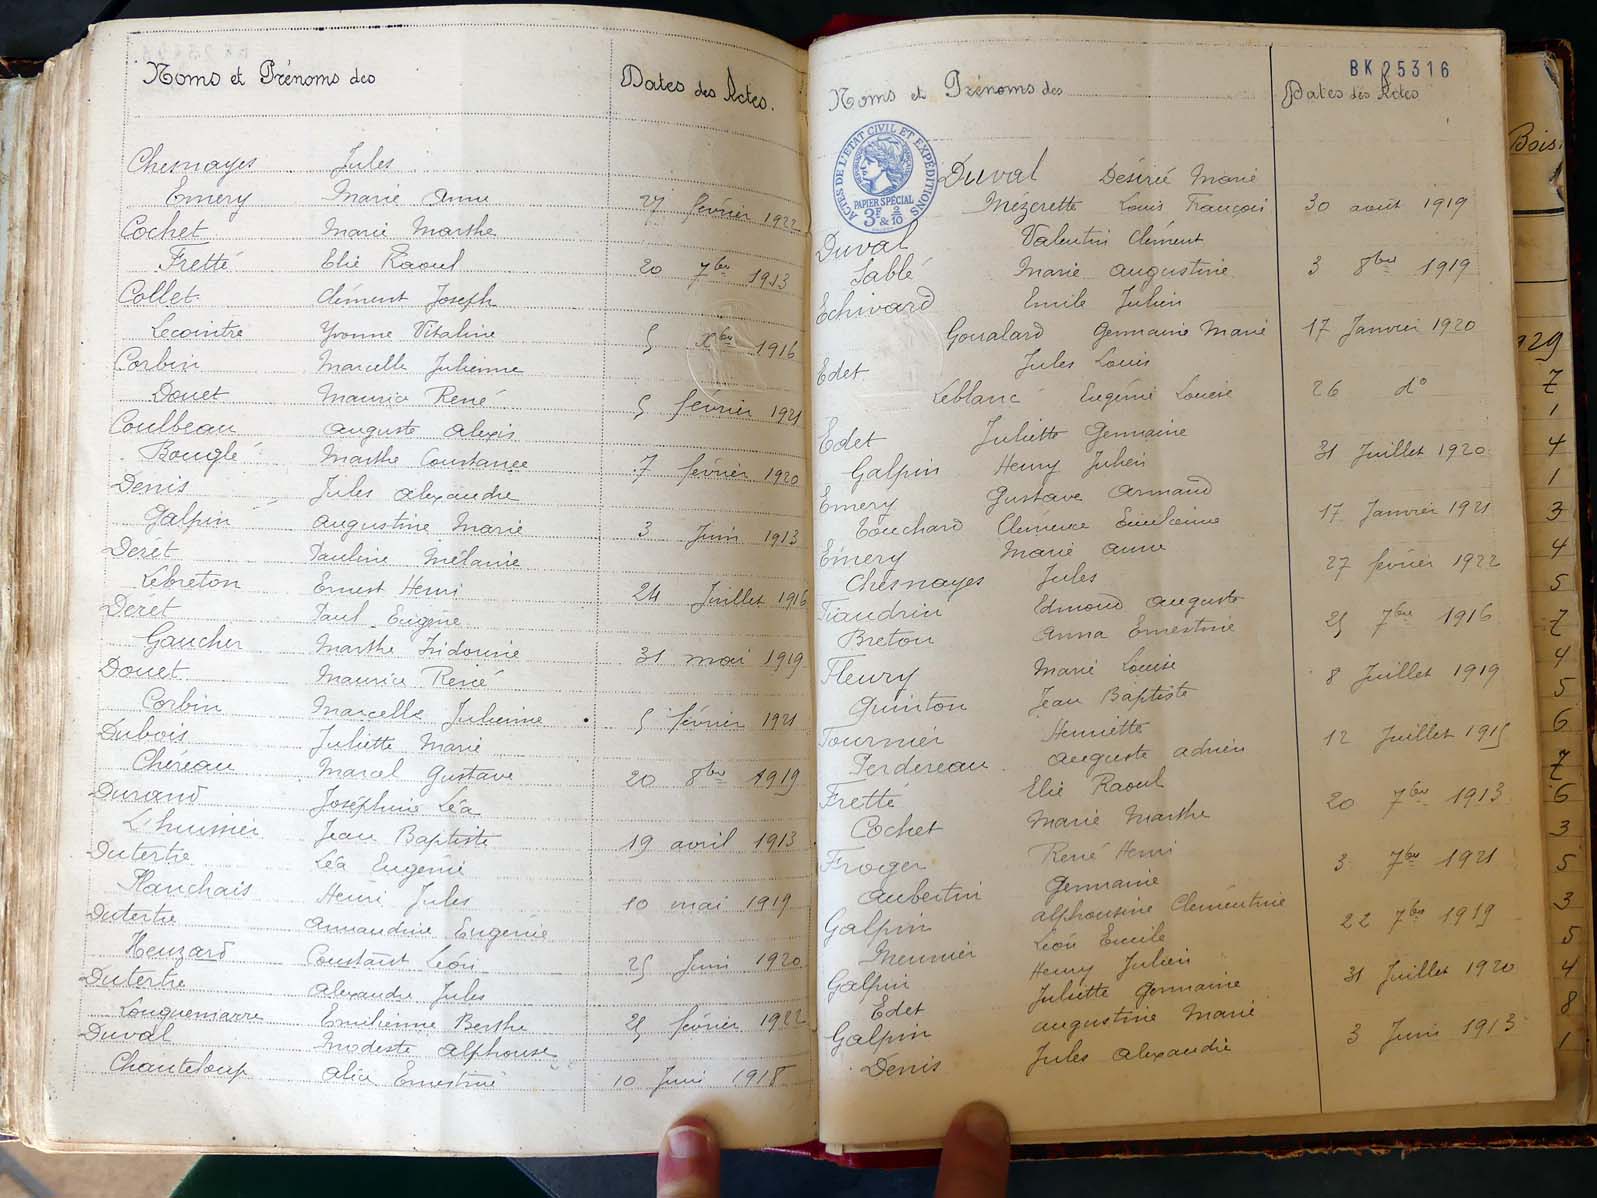 Noms et Prénoms des Dates des Actes.
Chesnayes Jules
Emery Marie Anne 27 février 1922
Cochet Marie Marthe
Fretté Elie Raoul 20 7bre 1913
Collet Clément Joseph
Lecointre Yvonne Vitaline 5 Xbre 1916
Corbin Marcelle Julienne
Douet Maurice René 5 février 1921
Coulbeau Auguste Alexis
Bouglé Marthe Constance 7 février 1920
Denis Jules Alexandre
Galpin Augustine Marie 3 Juin 1913
Derét Pauline Mélanie
Lebreton Ernest Henri 24 Juillet 1916
Derét Paul Eugène
Gaucher Marthe Isidorine 31 mai 1919
Douet Maurice René
Corbin Marcelle Julienne 5 février 1921
Dubois Juliette Marie
Chéreau Marcel Gustave 20 8bre 1919
Durand Joséphine Léa
L'huissier Jean Baptiste 19 avril 1913
Dutertre Léa Eugénie
Planchais Henri Jules 10 mai 1919
Dutertre Armandine Eugénie
Heuzard Constant Léon 25 Juin 1920
Dutertre Alexandre Jules
Louquemarre Emilienne Berthe 25 février 1922
Duval Modeste Alphonse
Chanteloup Alice Ernestine 10 Juin 1918
BK 25316
Noms et Prénoms des Dates des Actes
ACTES DE L'ETAT CIVIL ET EXPÉDITIONS
PAPIER SPÉCIAL
3F & 2/10
Duval Désiré Marie
Mézerette Louis François 30 août 1919
Duval Valentin Clément
Sablé Marie Augustine 3 8bre 1919
Echivard Emile Julien
Goualard Germaine Marie 17 Janvier 1920
Edet Jules Louis
Leblanc Eugénie Louise 26 do
Edet Juliette Germaine
Galpin Henry Julien 31 Juillet 1920
Emery Gustave Armand
Touchard Clémence Emilienne 17 Janvier 1921
Emery Marie Anne
Chesnayes Jules 27 février 1922
Fiaudrin Edmond Auguste
Breton Anna Ernestine 25 7bre 1916
Fleury Marie Louise
Quinton Jean Baptiste 8 Juillet 1919
Fournier Henriette
Perdereau Auguste Adrien 12 Juillet 1915
Fretté Elie Raoul
Cochet Marie Marthe 20 7bre 1913
Froger René Henri
Aubertin Germaine 3 7bre 1921
Galpin Alphonsine Clémentine
Meunier Léon Emile 22 7bre 1919
Galpin Henry Julien
Edet Juliette Germaine 31 Juillet 1920
Galpin Augustine Marie
Denis Jules Alexandre 3 Juin 1913
Bois.
929
7
1
4
1
3
4
5
7
4
5
6
7
6
3
5
3
5
4
8
1